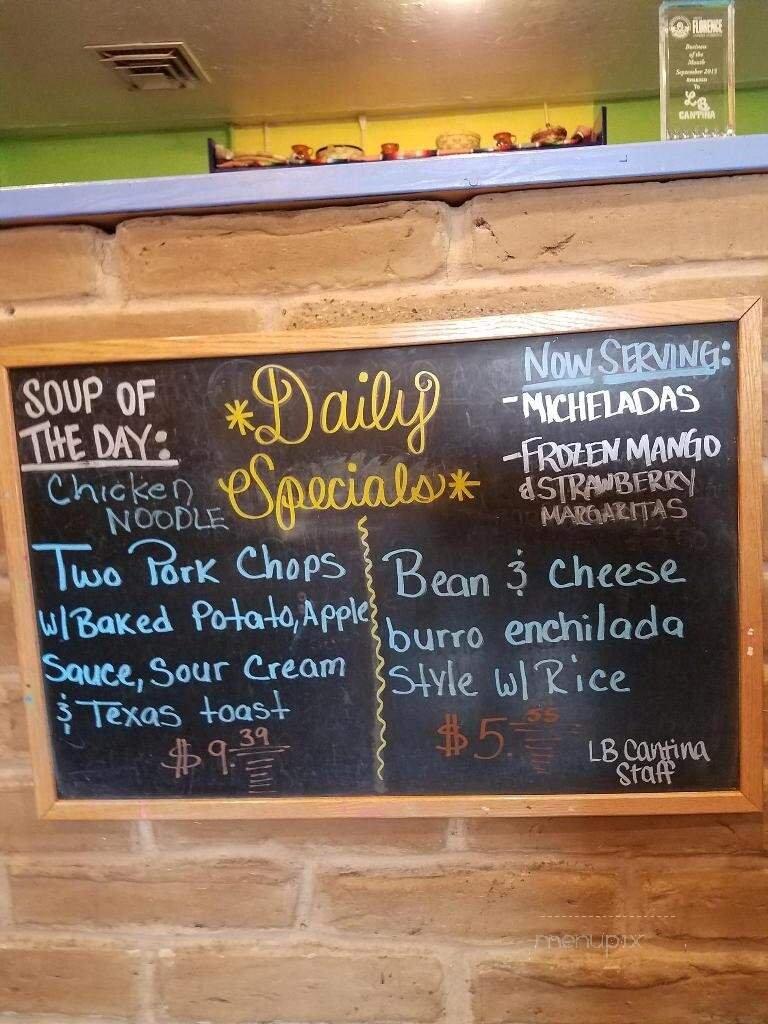 FLORENCE
Business
of the
Month
September 2015
To
LB
CANTINA
SOUP OF
THE DAY:
Chicken
NOODLE
*Daily
Specials*
NOW SERVING:
-MICHELADAS
-FROZEN MANGO
& STRAWBERRY
MARGARITAS
Two Pork Chops
w/Baked Potato, Apple
Sauce, Sour Cream
& Texas toast
$9.39
Bean & Cheese
burro enchilada
Style w/ Rice
$5.55
LB Cantina
Staff
menupix